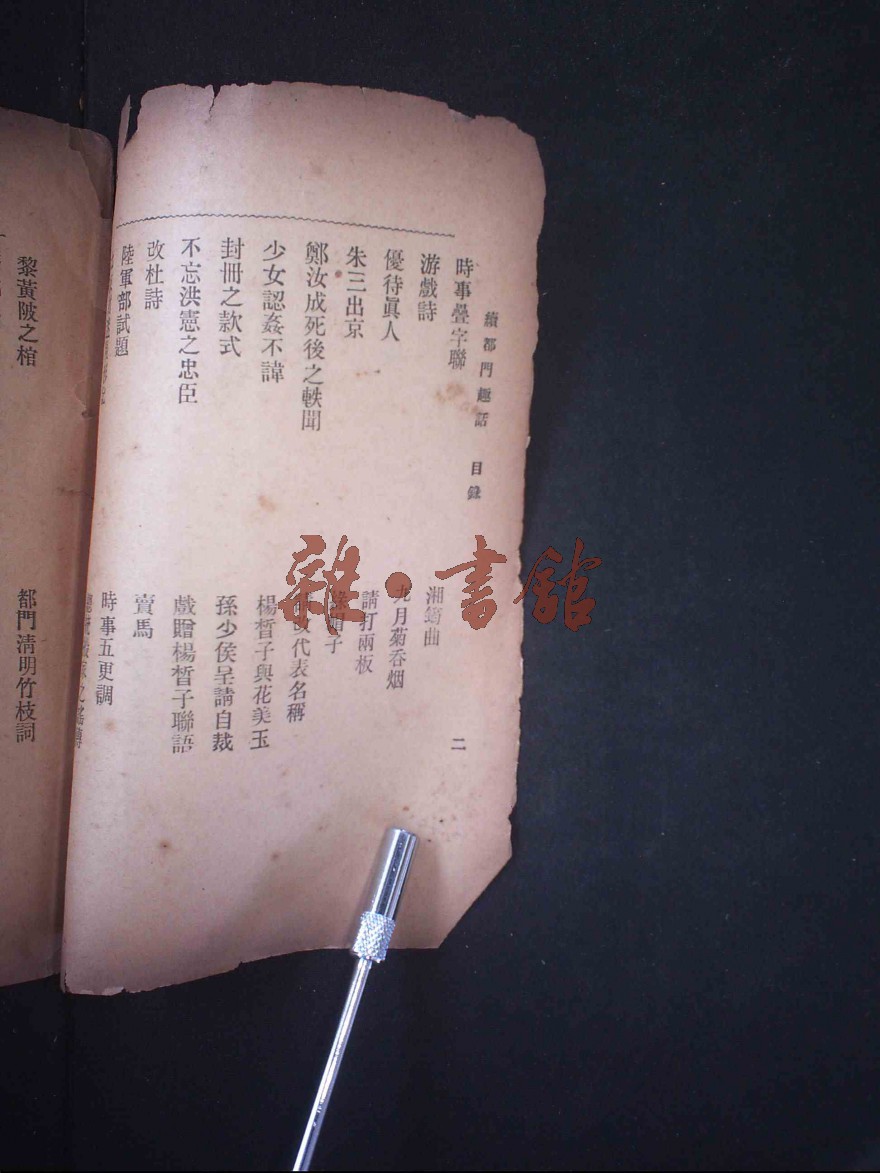 續都門趣話 目錄
二
時事疊字聯
游戲詩
優待眞人
朱三出京
鄭汝成死後之軼聞
少女認姦不諱
封冊之款式
不忘洪憲之忠臣
改杜詩
陸軍部試題
湘筠曲
九月菊吞烟
請打兩板
子
改代表名稱
楊晳子與花美玉
孫少侯呈請自裁
戲贈楊晳子聯語
賣馬
時事五更調
黎黃陂之棺
都門清明竹枝詞
雜·書館